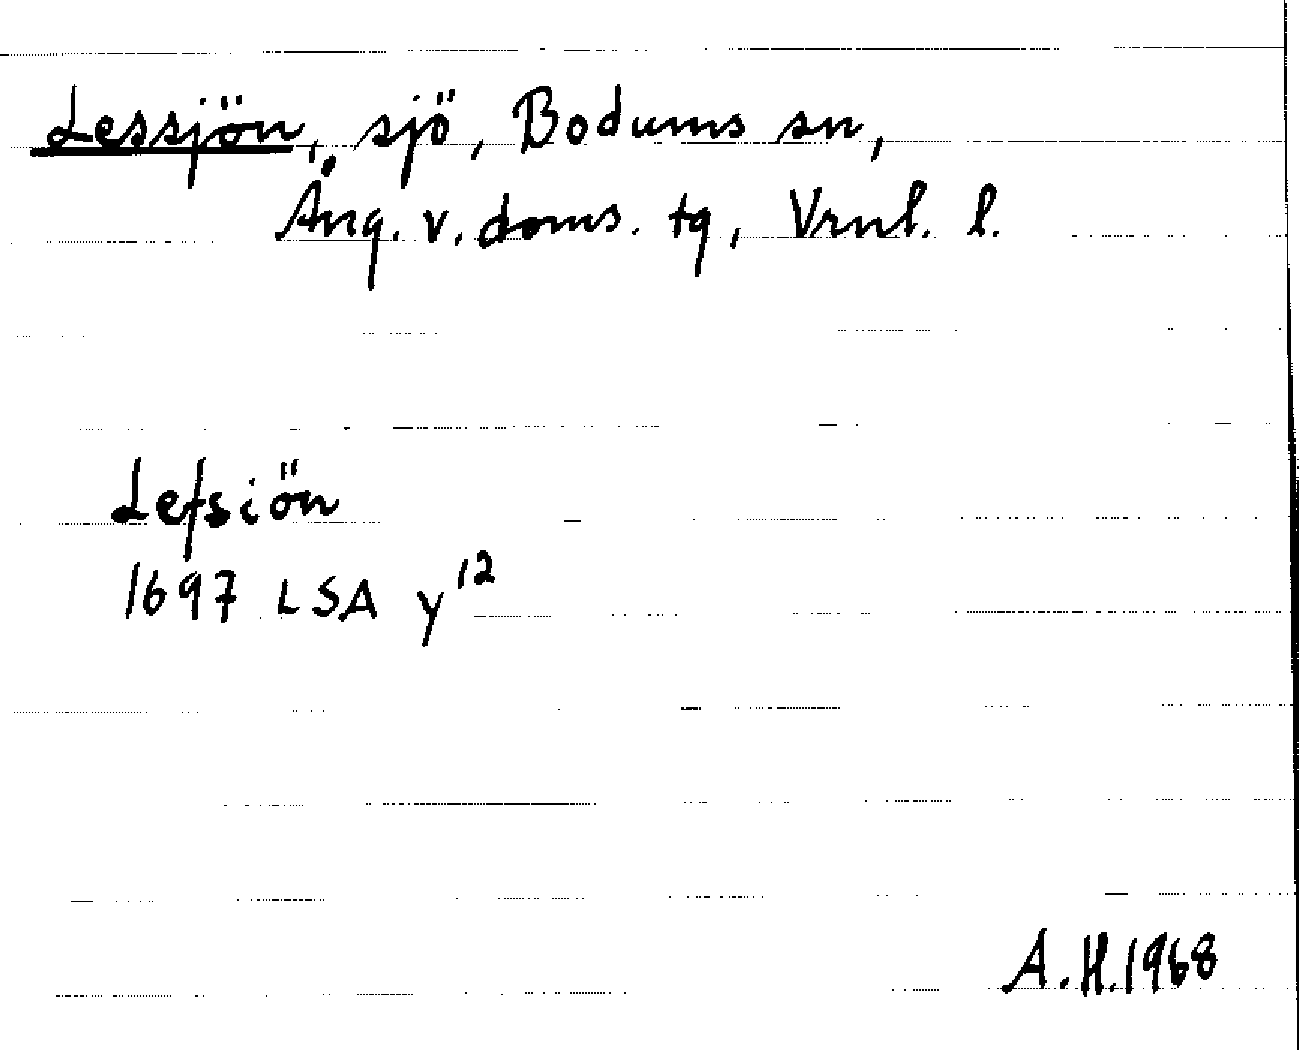 Lessjön, sjö, Bodums sn,
Ång. v. doms. tg, Vrnl. l.
Lefsiön
1697 LSA y¹²
A.H. 1968